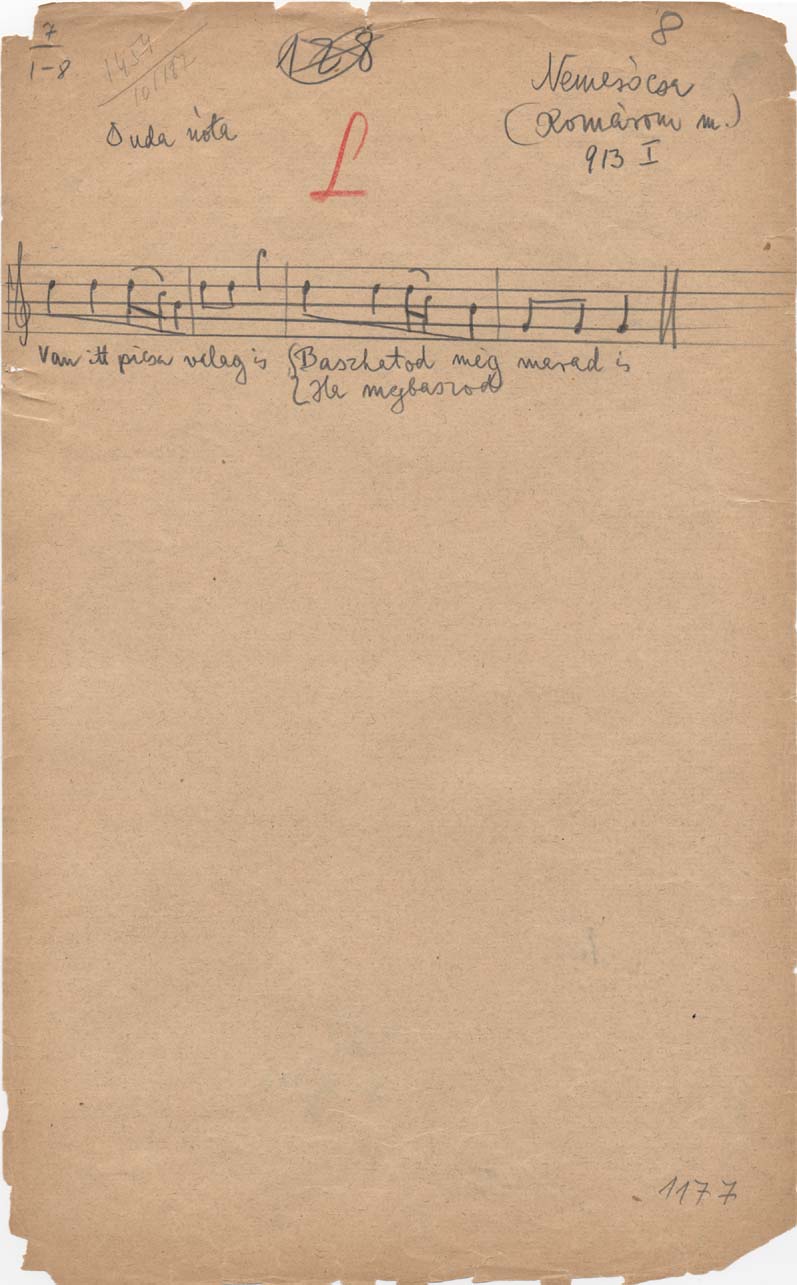 7
1-8
1454
101/182
128
8
Nemesócsa
(Komárom m.)
913 I
Duda nóta
L
Van itt picsa velag is { Baszhatod még marad is
{ Ha megbaszod
1177